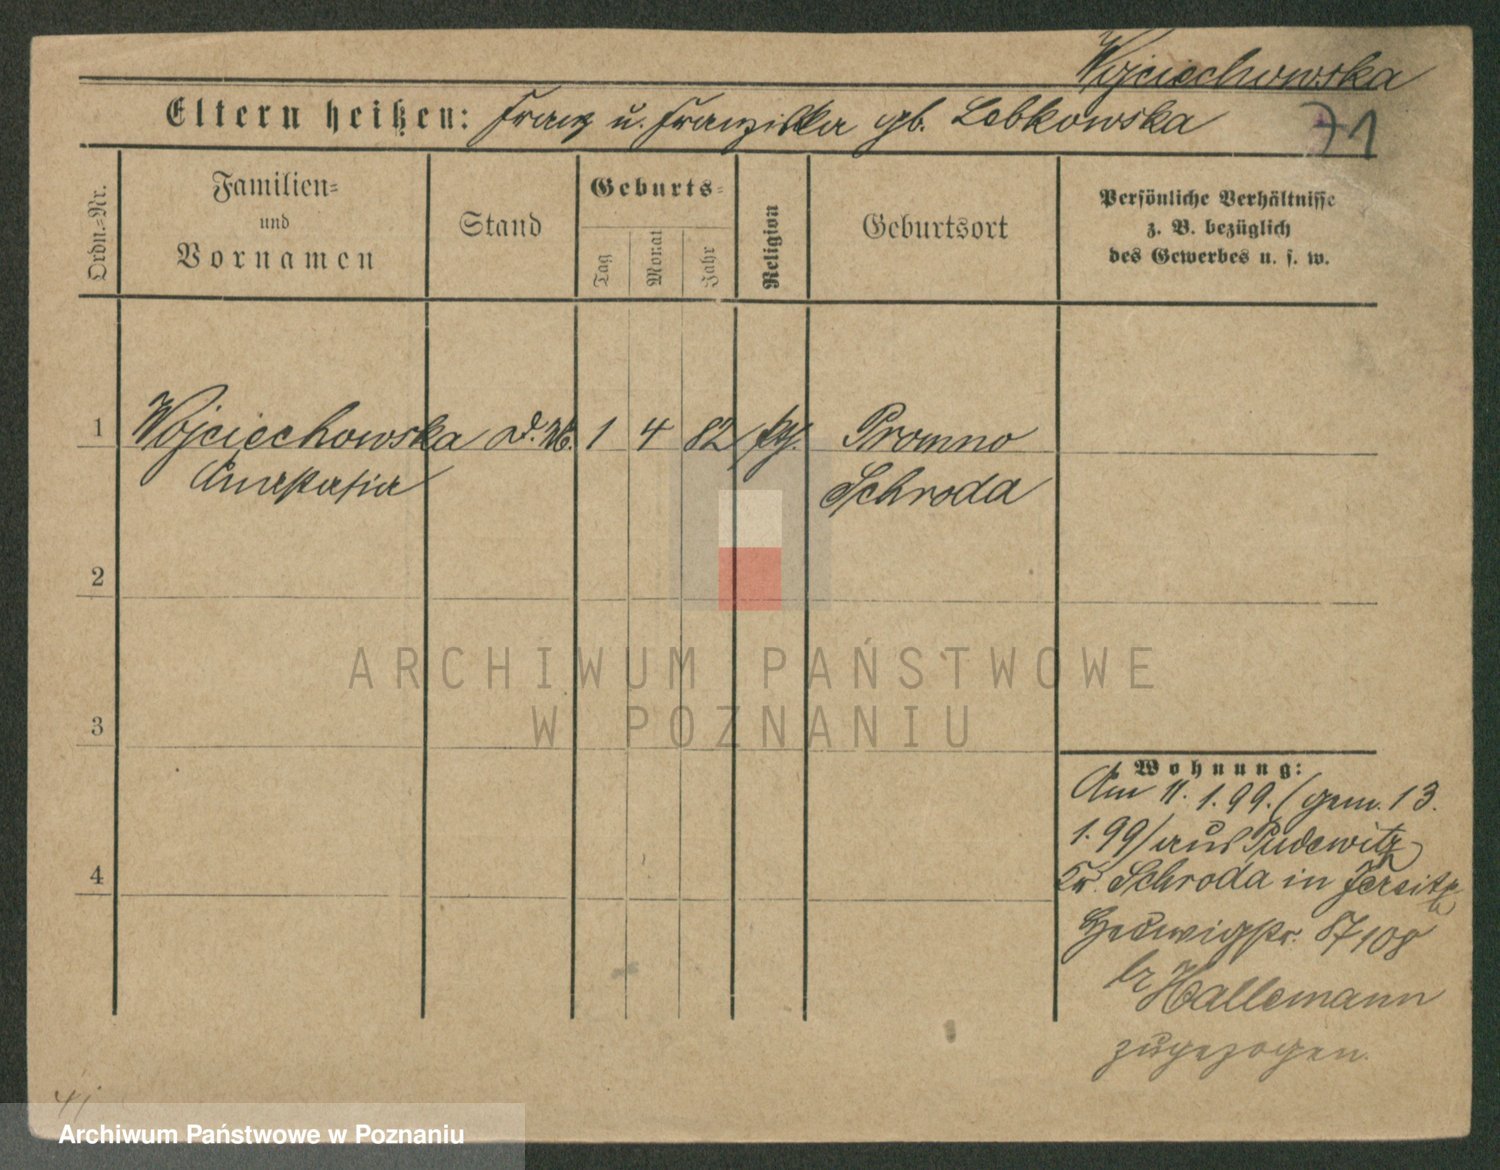 Wojciechowska
Eltern heißen: Franz u. Franziska gb. Lebkowska
71
Ordn.-Nr.
Familien-
und
Vornamen
Stand
Geburts-
Tag
Monat
Jahr
Religion
Geburtsort
Persönliche Verhältnisse
z. B. bezüglich
des Gewerbes u. s. w.
1 Wojciechowska d. M. 1 4 82 ktl. Promno
Anastasia Schroda
2
3
4
Wohnung:
Am 11. 1. 99. / gem. 13.
1. 99 / aus Pudewitz
Kr. Schroda in Jersitz
Hedwigstr.
Hallemann
zugezogen.
ARCHIWUM PAŃSTWOWE
W POZNANIU
Archiwum Państwowe w Poznaniu